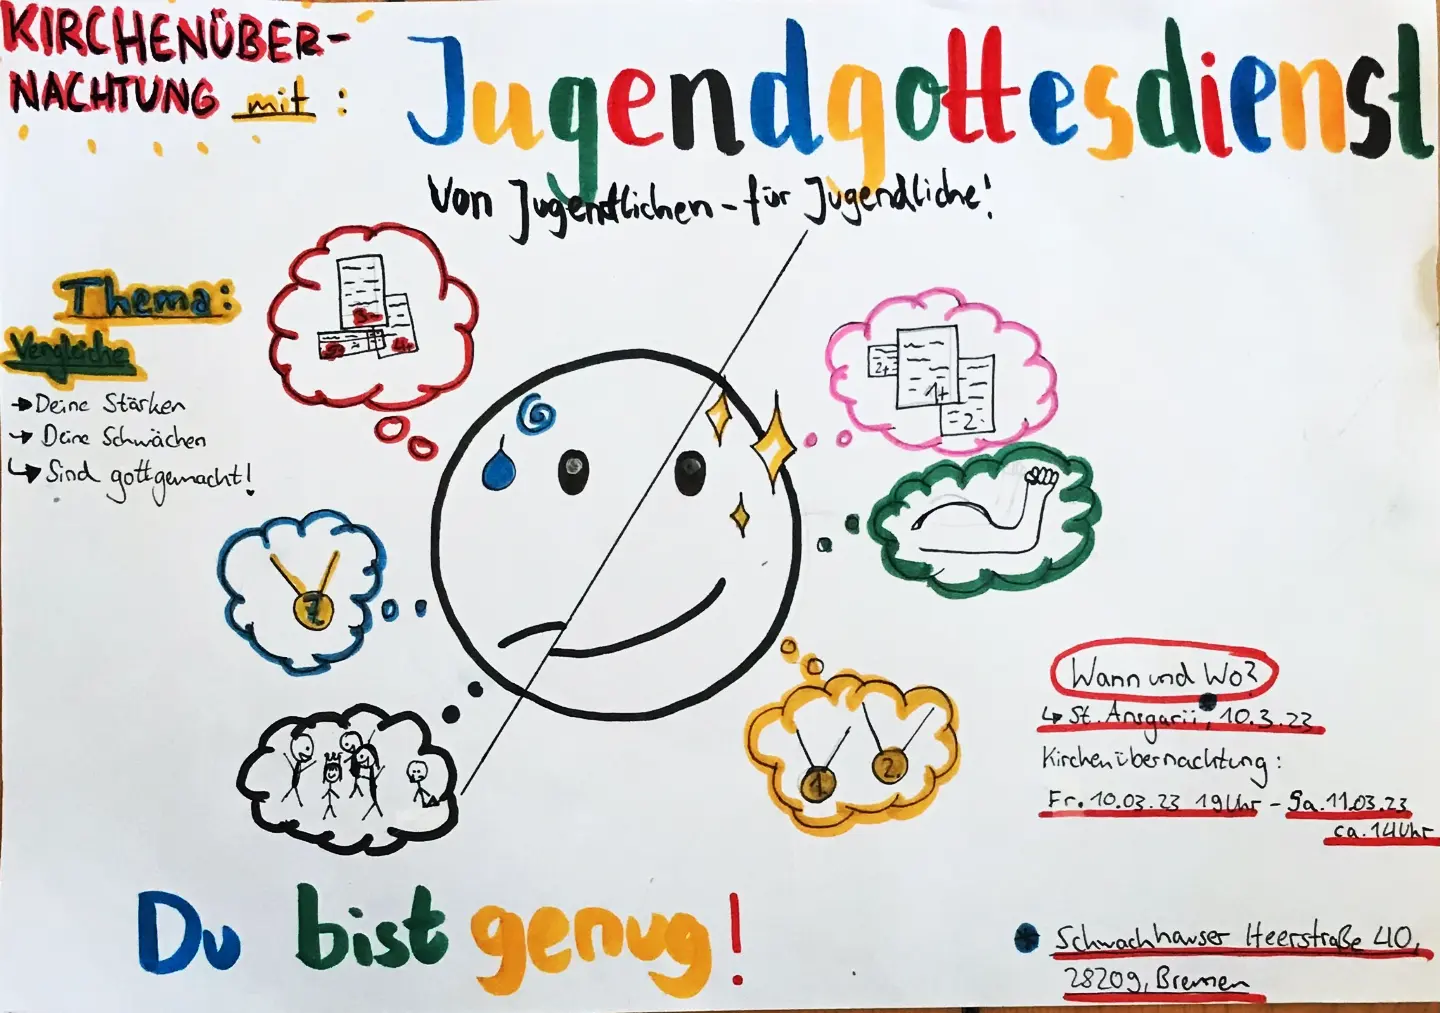 KIRCHENÜBER-
NACHTUNG mit:
Jugendgottesdienst
Von Jugendlichen - für Jugendliche!
Thema:
Vergleiche
→ Deine Stärken
→ Deine Schwächen
↳ Sind gottgemacht!
2+
1+
2-
1.
2.
Wann und Wo?
↳ St. Ansgarii, 10.3.23
Kirchenübernachtung:
Fr. 10.03.23 19 Uhr - Sa. 11.03.23
ca. 14 Uhr
Du bist genug!
Schwachhauser Heerstraße 40,
28209, Bremen